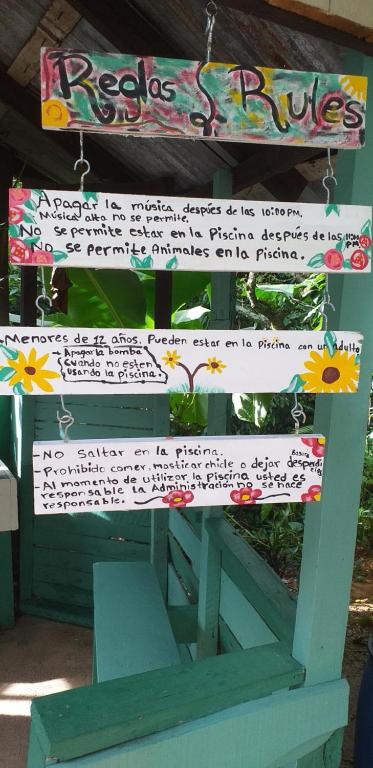 Reglas / Rules
Apagar la música después de las 10:00 PM.
Música alta no se permite.
No se permite estar en la Piscina después de las 11:00 PM
No se permite Animales en la Piscina.
Menores de 12 años. Pueden estar en la piscina con un adulto
- Apagar la bomba
cuando no esten
usando la piscina.
- No Saltar en la piscina.
- Prohibido comer, masticar chicle o dejar desperdicio
Basura
- Al momento de utilizar la piscina usted es
responsable la Administración no se hace
responsable.